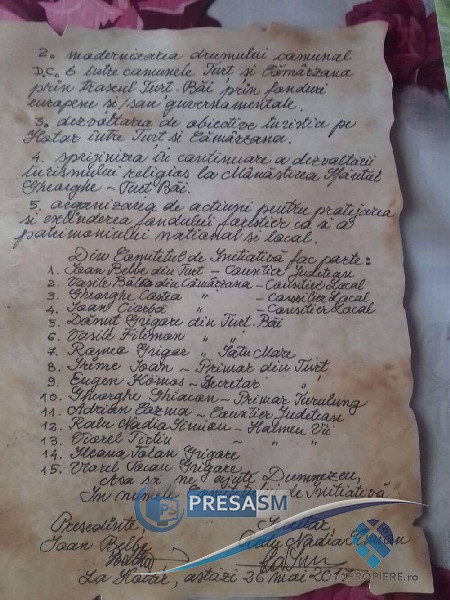 2. modernizarea drumului comunal
D.C. 6 între comunele Turț și Cămârzana
prin traseul Turț-Băi prin fonduri
europene și/sau guvernamentale.
3. dezvoltarea de obiective turistice pe
Hotar între Turț și Cămârzana.
4. sprijinirea în continuare a dezvoltării
turismului religios la Mânăstirea Sfântul
Gheorghe - Turț Băi.
5. organizarea de acțiuni pentru protejarea
și extinderea fondului forestier că și a
patrimoniului național și local.
Din Comitetul de Inițiativă fac parte:
1. Ioan Belbe din Turț - Consilier Județean
2. Vasile din Cămârzana - Consilier Local
3. Gheorghe Costea " - Consilier Local
4. Ioan Ciorbă " - Consilier Local
5. Dănuț Grigore din Turț-Băi
6. Vasile Filimon " "
7. Grigor " Satu Mare
8. Ioan - Primar din Turț
9. Eugen - Secretar "
10. Gheorghe - Primar Turulung
11. Adrian Cozma - Consilier Județean
12. Nadia Simion - Halmeu Vii
13. Viorel " "
14. Ileana Grigore
15. Viorel Grigore
Așa să ne ajute Dumnezeu,
În numele de Inițiativă
Președinte
Ioan Belbe Nadia Simion
La Hotar, astăzi 26 mai 2017
PS PRESASM
APROPIERE.ro